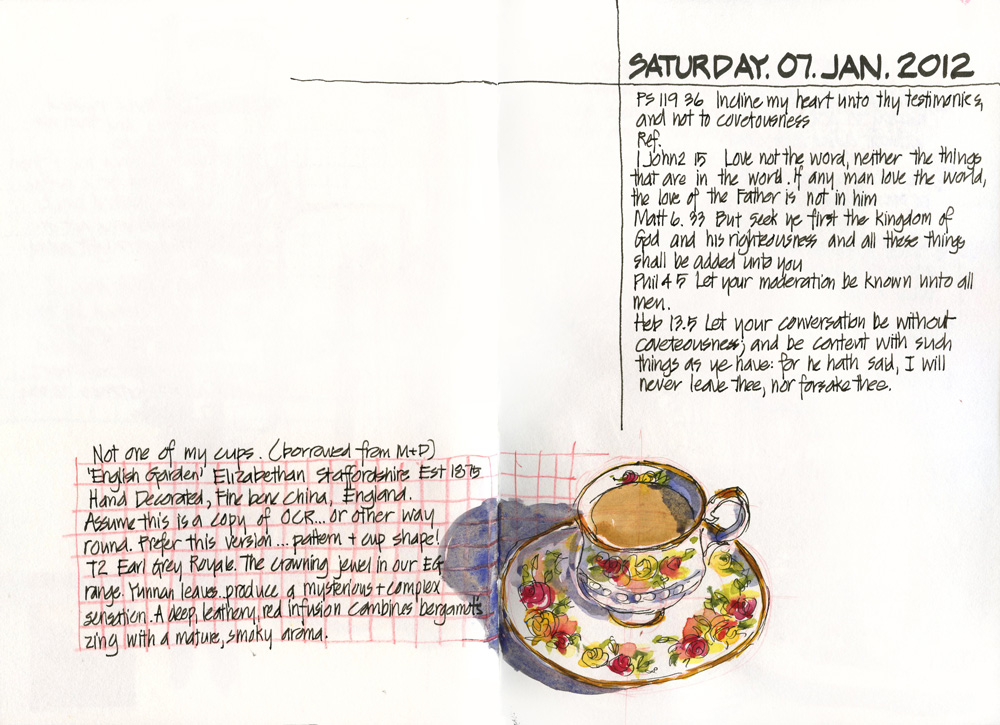 SATURDAY. 07. JAN. 2012
Ps 119 36 Incline my heart unto thy testimonies,
and not to covetousness
Ref.
1 John 2 15 Love not the word, neither the things
that are in the word. If any man love the world,
the love of the Father is not in him
Matt 6. 33 But seek ye first the kingdom of
God and his righteousness and all these things
shall be added unto you
Phil 4 5 Let your moderation be known unto all
men.
Heb 13.5 Let your conversation be without
coveteousness; and be content with such
things as ye have: for he hath said, I will
never leave thee, nor forsake thee.
Not one of my cups. (borrowed from M+D)
'English Garden' Elizabethan Staffordshire Est 1875
Hand Decorated, Fine bone China, England.
Assume this is a copy of OCR... or other way
round. Prefer this version... pattern + cup shape!
T2 Earl Grey Royale. The crowning jewel in our EG
range. Yunnan leaves produce a mysterious + complex
sensation. A deep, leathery, red infusion combines bergamot's
zing with a mature, smoky aroma.